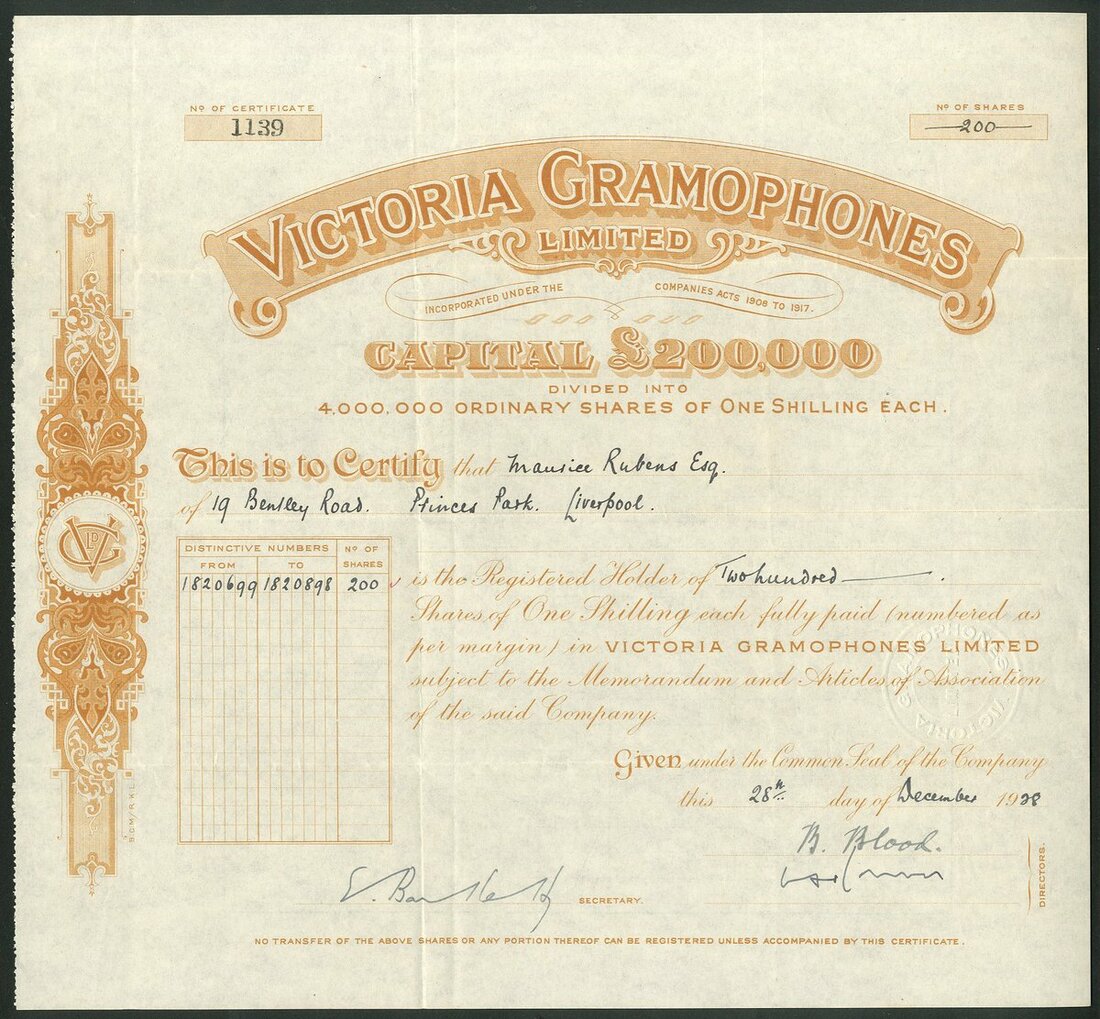 Nº OF CERTIFICATE
1139
Nº OF SHARES
200
VICTORIA GRAMOPHONES
LIMITED
INCORPORATED UNDER THE COMPANIES ACTS 1908 TO 1917.
CAPITAL £200,000
DIVIDED INTO
4,000,000 ORDINARY SHARES OF ONE SHILLING EACH.
This is to Certify that Maurice Rubens Esq.
of 19 Bentley Road. Princes Park. Liverpool.
DISTINCTIVE NUMBERS Nº OF SHARES
FROM TO
1820699 1820898 200
is the Registered Holder of Two hundred
Shares of One Shilling each fully paid (numbered as
per margin) in VICTORIA GRAMOPHONES LIMITED
subject to the Memorandum and Articles of Association
of the said Company.
Given under the Common Seal of the Company
this 28th day of December 1928
B. Blood.
DIRECTORS.
SECRETARY.
NO TRANSFER OF THE ABOVE SHARES OR ANY PORTION THEREOF CAN BE REGISTERED UNLESS ACCOMPANIED BY THIS CERTIFICATE.